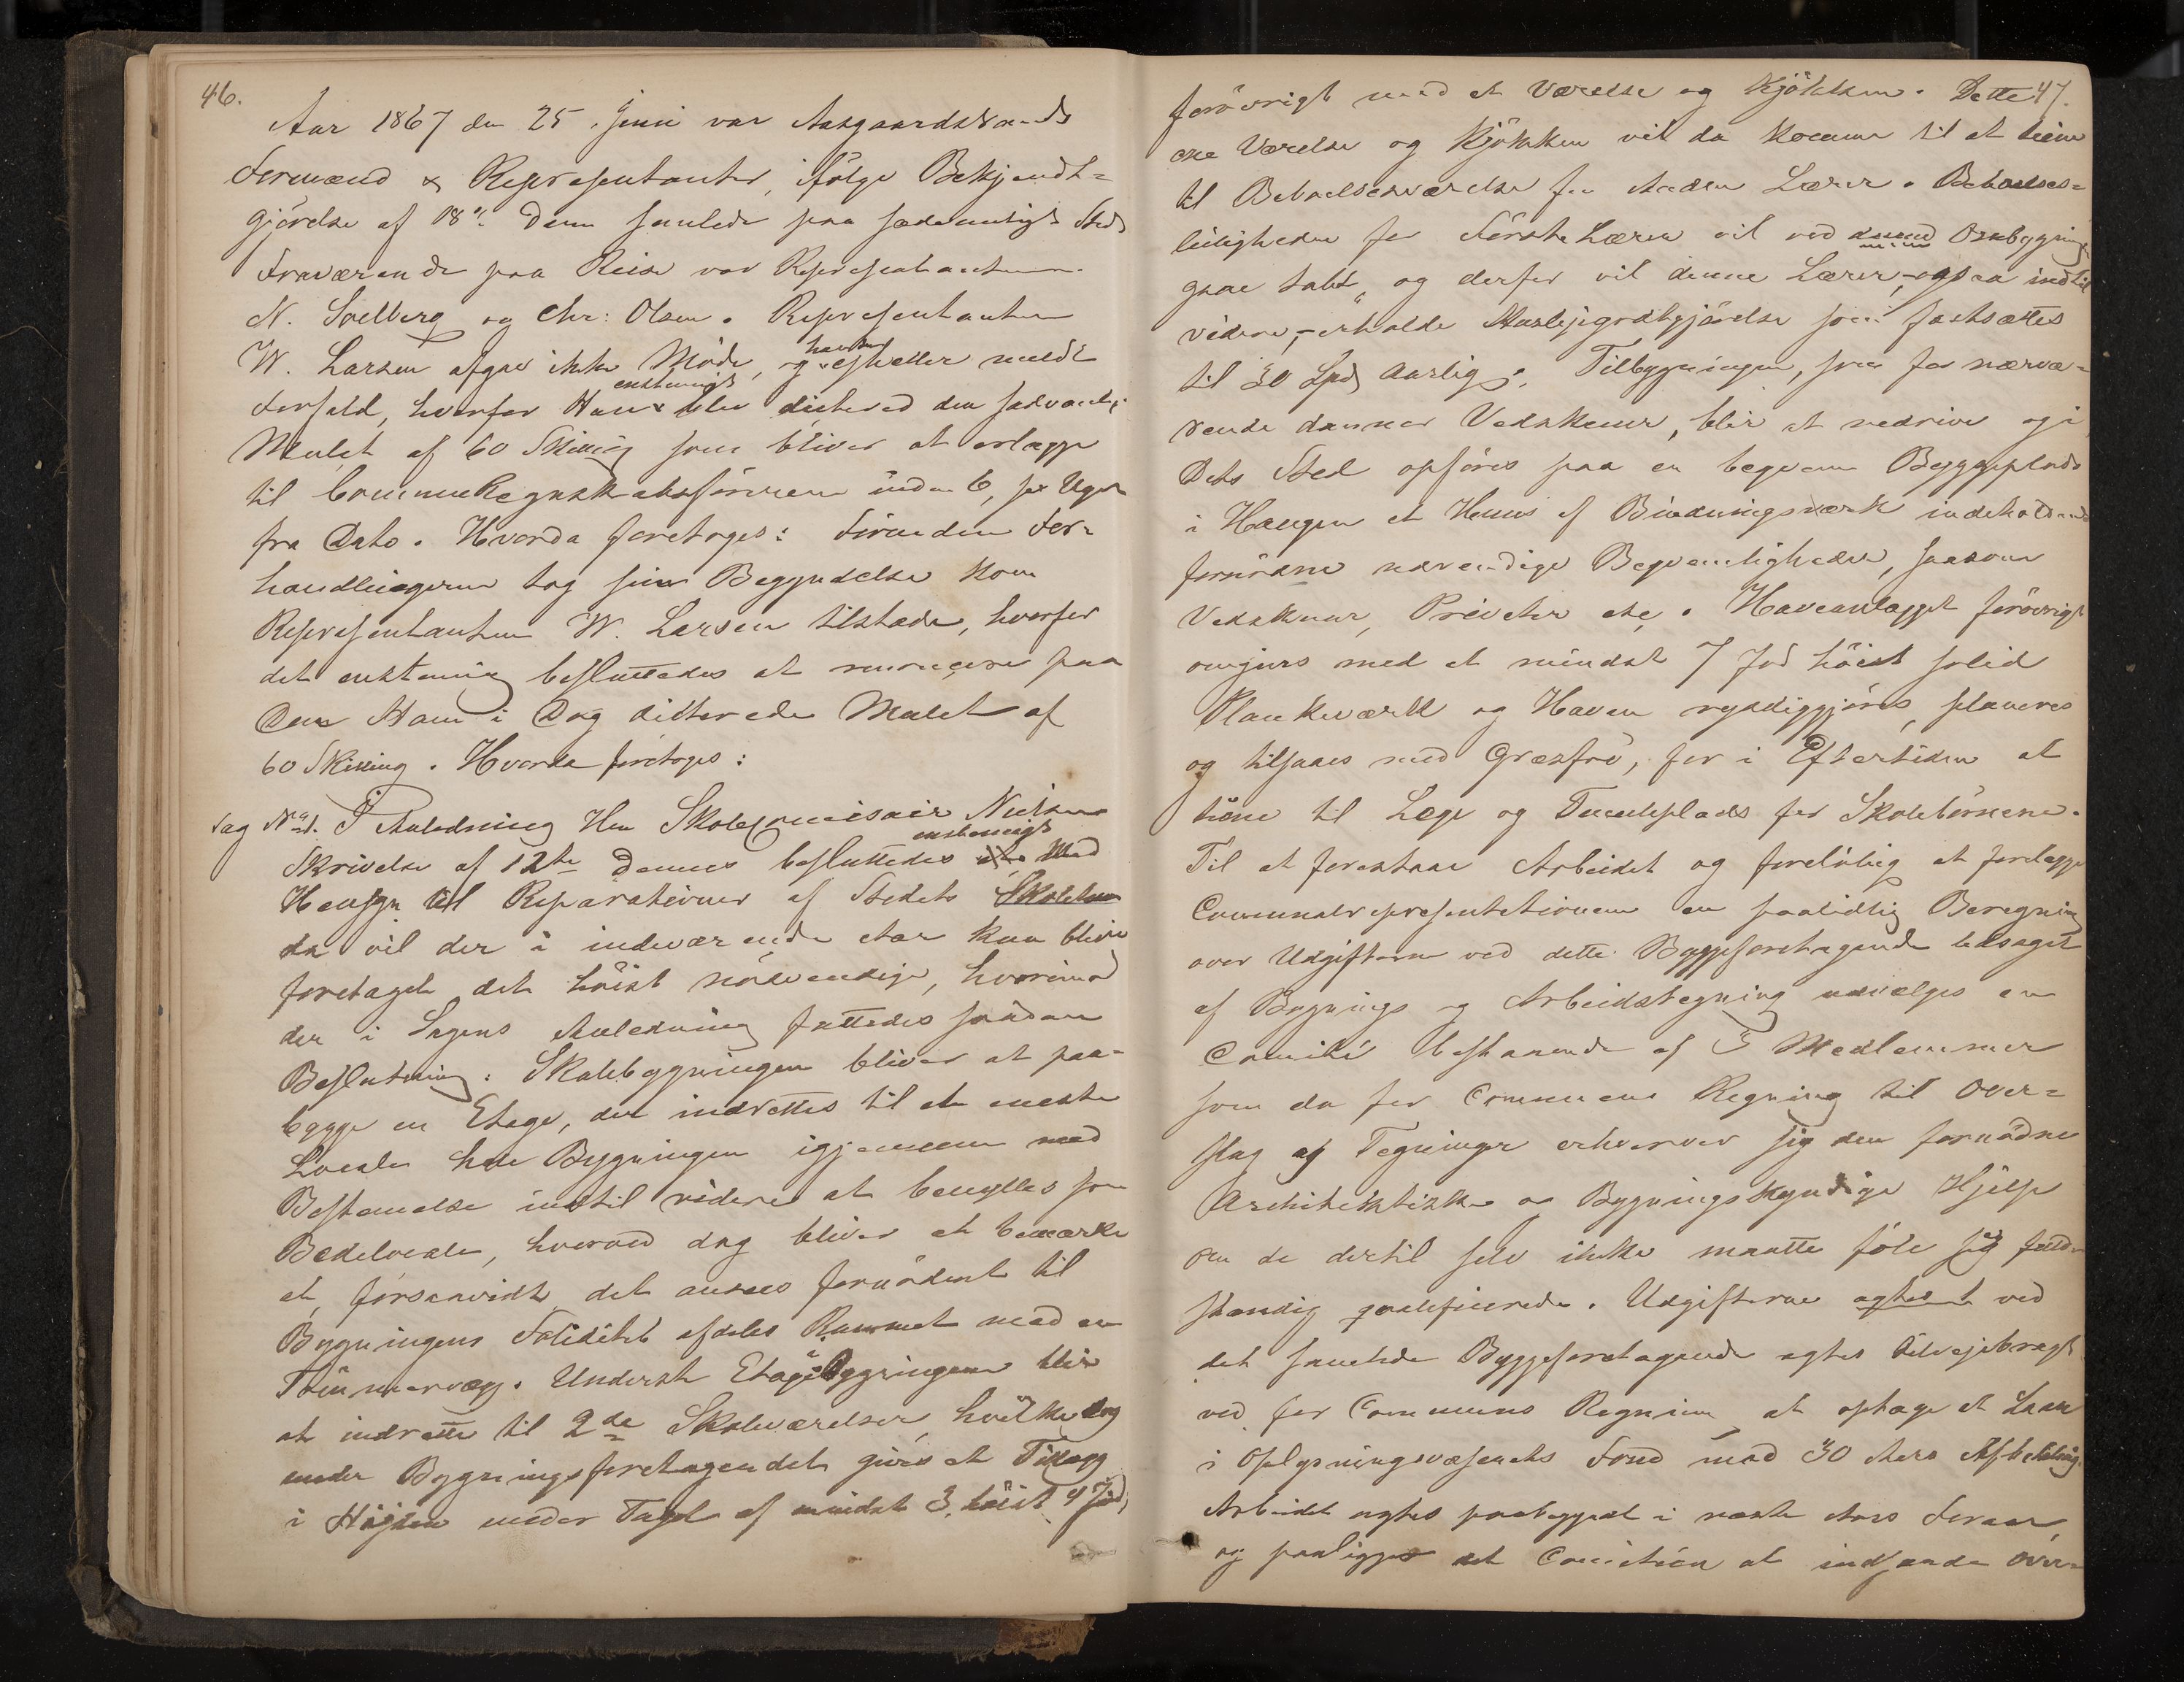 46.
Aar 1867 den 25. Juni var Aasgaardstrands
Formænd & Repræsentanter, ifölge Bekjendt=
gjörelse af 18de Dennes samlede paa sædvanligt Sted
Fraværende paa Reise var Repræsentanterne
N. Solberg og Chr: Olsen. Repræsentanten
W. Larsen afgav ikke Möde, og havde ei heller meldt
Forfald, hvorfor Han enstemmigt blev dicteret den sædvanlige
Mulct af 60 Skilling som bliver at erlægge
til Communeregnskabsföreren inden 6, sex Uger
fra Dato. Hvorda foretoges: Förend den For=
handlingerne tog sin Begyndelse kom
Repræsentanten W. Larsen tilstede, hvorfor
det enstemmig besluttedes at renoncere paa
Den Ham i Dag dicterede Mulct af
60 Skilling. Hvorda foretoges:
Sag No 1. I Anledning Herr Skolecommisair Nielsens
Skrivelse af 12te Dennes besluttedes enstemmigt Med
Hensyn til Reparationer af Stedets Skolehus
da vil der i indeværende Aar kun blive
foretaget det höist nödvendige, hvorimod
der i Sagens Anledning fattedes saadan
Beslutning: Skolebygningen bliver at paa=
bygge en Etage, der indrettes til et eneste
Locale hele Bygningen igjennem med
Bestemmelse indtil videre at benyttes som
Bedelocale, hvorved dog bliver at bemærke
at, forsaavidt det ansees fornödent til
Bygningens Soliditet afdeles Rummet med en
Tömmervæg. Underste Etage i Bygningen blir
at indrette til 2de Skoleværelser, hvilke dog
under Bygningsforetagendet gives et Tillæg
i Höjden under Taget af mindst 3, höist 4 Fod,
47.
forövrigt med et Værelse og Kjökken. Dette
ene Værelse og Kjökken vil da komme til at tiene
til Beboelsesværelse for Anden Lærer. Beboelses=
leiligheden for Förste Lærer vil ved denne Ombygning
gaae tabt, og derfor vil denne Lærer, -ogsaa indtil
videre,- erholde Huslejegodtgjörelse som fastsættes
til 30 Spd aarlig. Tilbygningen, som for nærvæ=
rende danner Vedskuur, blir at nedrive og i
Dets Sted opföres paa en beqvem Byggeplads
i Haugen et Huus af Bindningsværk indeholdende
fornödne nödvendige Beqvemligheder, saasom
Vedskuur, Priveter etc. Haveanlægget forövrigt
omgives med et mindst 7 Fod höist solid
Plankeværk og Haven ryddiggjöres, planeres
og tilsaaes med Græsfrö, for i Eftertiden at
tiene til Lege og Tumleplads for Skolebörnene.
Til at forestaae Arbeidet og forelöbig at forelægge
Communalrepræsentationen en paalidelig Beregning
over Udgifterne ved dette Byggeforetagende ledsaget
af Bygnings og Arbeidstegning udvælges en
Comite bestaaende af 3 Medlemmer
som da for Communens Regning til Over=
slag og Tegninger erhverver sig den fornödne
Architektiske og Bygningskyndige Hjelp
om de dertil selv ikke maatte föle sig fuld
stændig qvalificerede. Udgifterne agtes ved
det samlede Byggeforetagende agtes tilvejebragt
ved for Communens Regning at optage et Laan
i Oplysningsvæsenets Fond med 30 Aars Afbetaling.
Arbeidet agtes paabegyndt i næste Aars Foraar,
og paaligger det Comiteen at indsende Over=